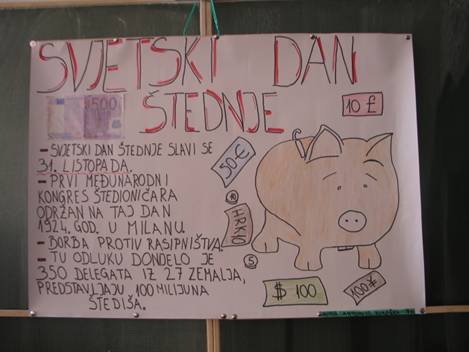 SVJETSKI DAN
ŠTEDNJE
500
10 £
50 €
HRK 10
$ 100
100 ¥
- SVJETSKI DAN ŠTEDNJE SLAVI SE
31. LISTOPADA.
- PRVI MEĐUNARODNI
KONGRES ŠTEDIONIČARA
ODRŽAN NA TAJ DAN
1924. GOD. U MILANU.
- BORBA PROTIV RASIPNIŠTVA!
- TU ODLUKU DONDELO JE
350 DELEGATA IZ 27 ZEMALJA,
PREDSTAVLJAJU 100 MILIJUNA
ŠTEDIŠA.